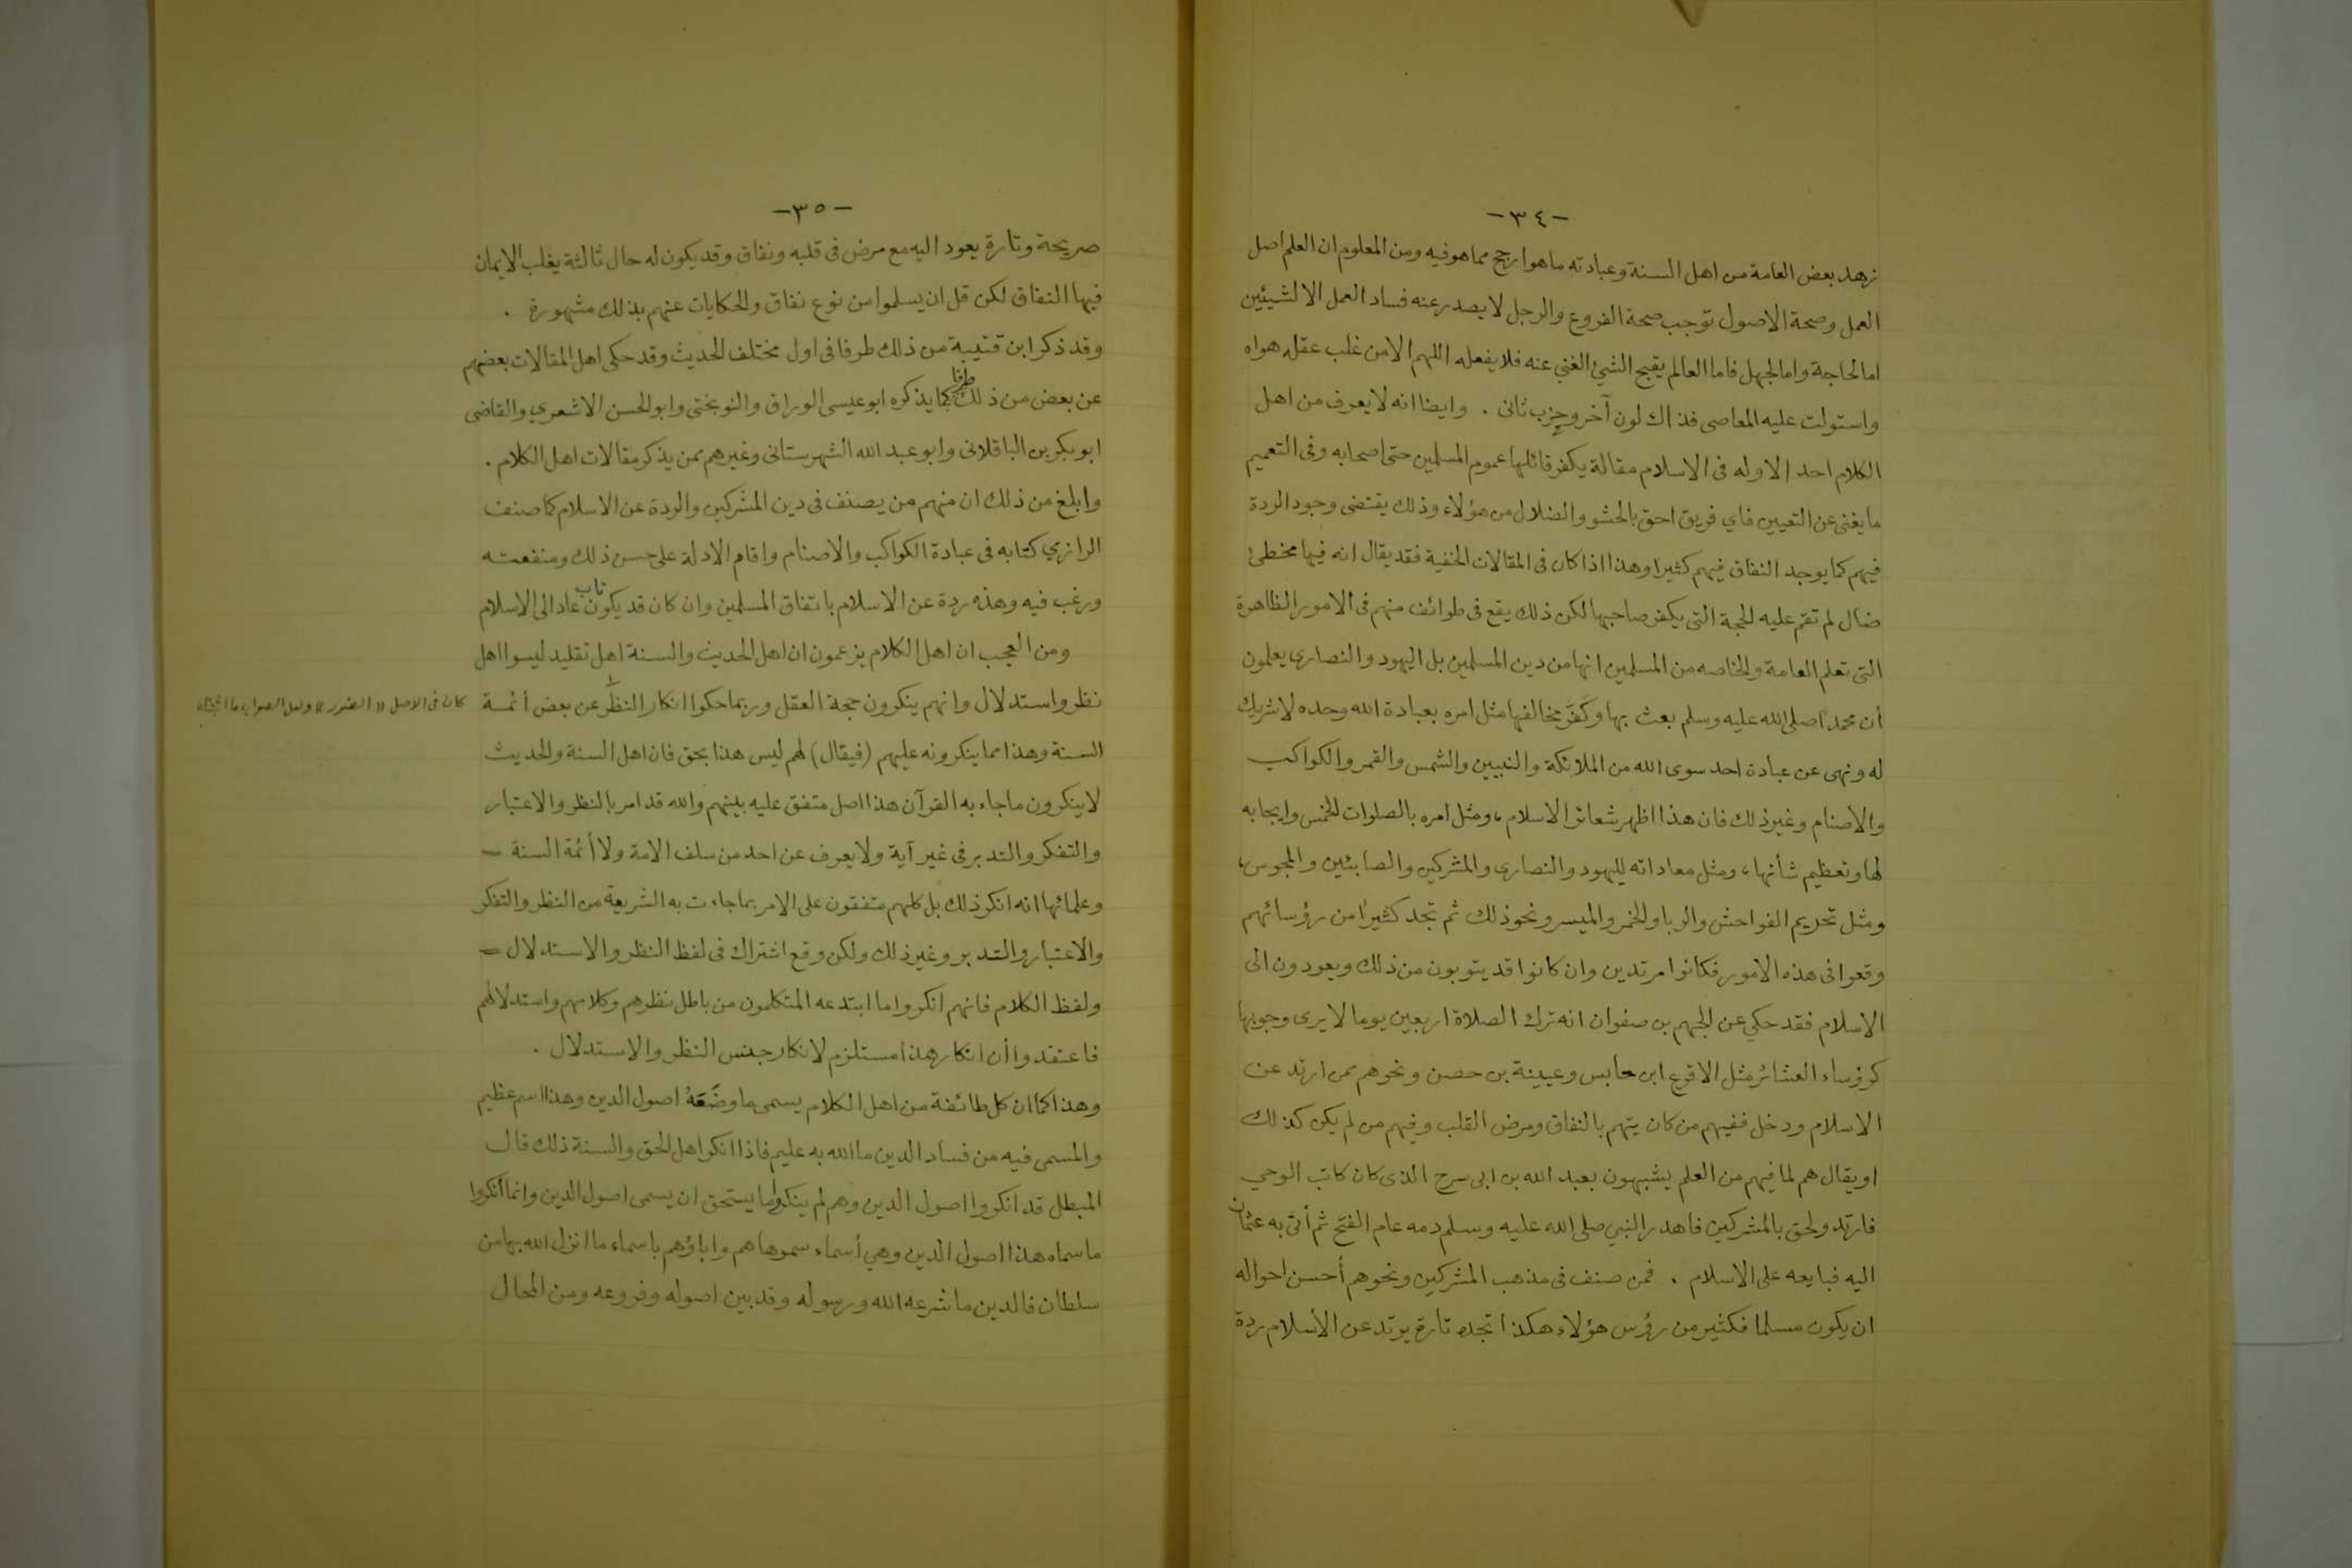 -٣٤-
زهد بعض العامة من اهل السنة وعبادته ما هوارجح مما هو فيه ومن المعلوم ان العلم اصل
العمل وصحة الاصول توجب صحة الفروع والرجل لا يصدر عنه فساد العمل الا لشيئين
اما لحاجة واما لجهل فاما العالم يقبح الشيئ الغني عنه فلا يفعله اللهم الا من غلب عقله هواه
واستولت عليه المعاصى فذاك لون آخر وحزب ثانى . وايضا انه لا يعرف من اهل
الكلام احد الا وله فى الاسلام مقالة يكفر قائلها عموم المسلمين حتى اصحابه وفى التعميم
ما يغنى عن التعيين فاي فريق احق بالحشو والضلال من هؤلاء وذلك يقتضى وجود الردة
فيهم كما يوجد النفاق فيهم كثيرا وهذا اذا كان فى المقالات الخفية فقد يقال انه فيها مخطئ
ضال لم تقم عليه الحجة التى يكفر صاحبها لكن ذلك يقع فى طوائف منهم فى الامور الظاهرة
التى تعلم العامة والخاصه من المسلمين انها من دين المسلمين بل اليهود والنصارى يعلمون
أن محمداً صلى الله عليه وسلم بعث بها وكَفَّر مخالفها مثل امره بعبادة الله وحده لا شريك
له ونهى عن عبادة احد سوى الله من الملائكة والنبيين والشمس والقمر والكواكب
والاصنام وغير ذلك فان هذا اظهر شعائر الاسلام، ومثل امره بالصلوات الخمس وايجابه
لها وتعظيم شأنها، ومثل معاداته لليهود والنصارى والمشركين والصابئين والمجوس،
ومثل تحريم الفواحش والربا والخمر والميسر ونحو ذلك ثم تجد كثيرًا من رؤسائهم
وقعوا فى هذه الامور فكانوا مرتدين وان كانوا قد يتوبون من ذلك ويعودون الى
الاسلام فقد حكي عن الجهم بن صفوان انه ترك الصلاة اربعين يوما لا يرى وجوبها
كرؤساء العشائر مثل الاقرع ابن حابس وعيينة بن حصن ونحوهم ممن ارتد عن
الاسلام ودخل ففيهم من كان يتهم بالنفاق ومرض القلب وفيهم من لم يكن كذلك
او يقال هم لما فيهم من العلم يشبهون بعبد الله بن ابى سرح الذى كان كاتب الوحي
فارتد ولحق بالمشركين فاهدر النبي صلى الله عليه وسلم دمه عام الفتح ثم أتى به عثمان
اليه فبايعه على الاسلام . فمن صنف فى مذهب المشركين ونحوهم أحسن احواله
ان يكون مسلما فكثير من رؤس هؤلاء هكذا تجده تارة يرتد عن الأسلام ردة
-٣٥-
صريحة وتارة يعود اليه مع مرض فى قلبه ونفاق وقد يكون له حال ثالثة يغلب الايمان
فيها النفاق لكن قل ان يسلموا من نوع نفاق والحكايات عنهم بذلك مشهورة .
وقد ذكر ابن قتيبة من ذلك طرفا فى اول مختلف الحديث وقد حكى اهل المقالات بعضهم
عن بعض من ذلك طرفا كما يذكره ابو عيسى الوراق والنوبختى وابو الحسن الاشعري والقاضى
ابو بكر بن الباقلانى وابو عبد الله الشهرستانى وغيرهم ممن يذكر مقالات اهل الكلام .
وابلغ من ذلك ان منهم من يصنف فى دين المشركين والردة عن الاسلام كما صنف
الرازي كتابه فى عبادة الكواكب والاصنام واقام الادلة على حسن ذلك ومنفعته
ورغب فيه وهذه ردة عن الاسلام باتفاق المسلمين وان كان قد يكون تاب عاد الى الاسلام
ومن العجب ان اهل الكلام يزعمون ان اهل الحديث والسنة اهل تقليد ليسوا اهل
نظر واستدلال وانهم ينكرون حجة العقل وربما حكوا انكار النظر عن بعض أئمة
كان فى الاصل «الضرر» ولعل الصواب ما اثبتناه
السنة وهذا مما ينكرونه عليهم (فيقال) لهم ليس هذا بحق فان اهل السنة والحديث
لا ينكرون ما جاء به القرآن هذا اصل متفق عليه بينهم والله قد امر بالنظر والاعتبار
والتفكر والتدبر فى غير آية ولا يعرف عن احد من سلف الامة ولا أئمة السنة –
وعلمائها انه انكر ذلك بل كلهم متفقون على الامر بما جاءت به الشريعة من النظر والتفكر
والاعتبار والتدبر وغير ذلك ولكن وقع اشتراك فى لفظ النظر والاستدلال –
ولفظ الكلام فانهم انكروا ما ابتدعه المتكلمون من باطل نظرهم وكلامهم واستدلالهم
فاعتقدوا أن انكار هذا مستلزم لانكار جنس النظر والاستدلال .
وهذا كما ان كل طائفة من اهل الكلام يسمى ما وضَعَهُ اصول الدين وهذا اسم عظيم
والمسمى فيه من فساد الدين ما الله به عليم فاذا انكر اهل الحق والسنة ذلك قال
المبطل قد انكروا اصول الدين وهم لم ينكروا ما يستحق ان يسمى اصول الدين وانما أنكروا
ما سماه هذا اصول الدين وهي أسماء سموها هم واباؤهم باسماء ما انزل الله بها من
سلطان فالدين ما شرعه الله ورسوله وقد بين اصوله وفروعه ومن المحال